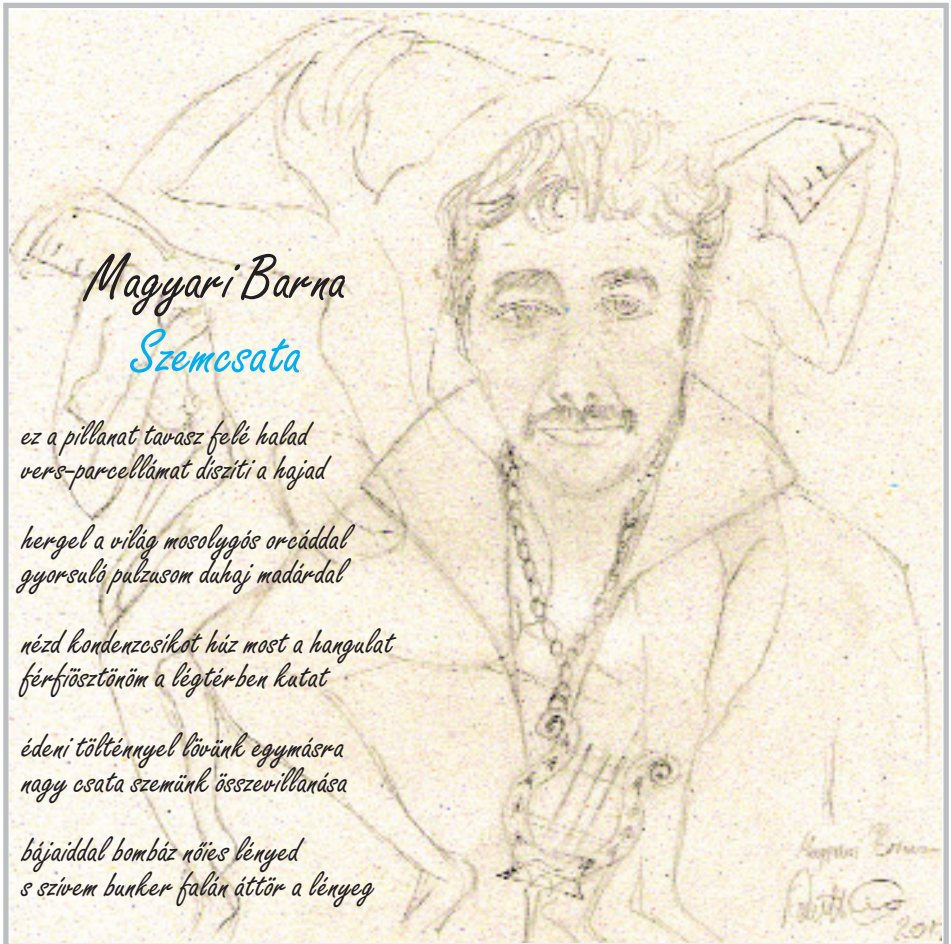 Magyari Barna
Szemcsata
ez a pillanat tavasz felé halad
vers-parcellámat díszíti a hajad
hergel a világ mosolygós orcáddal
gyorsuló pulzusom duhaj madárdal
nézd kondenzcsíkot húz most a hangulat
férfiösztönöm a légtérben kutat
édeni tölténnyel lövünk egymásra
nagy csata szemünk összevillanása
bájaiddal bombáz nőies lényed
s szívem bunker falán áttör a lényeg